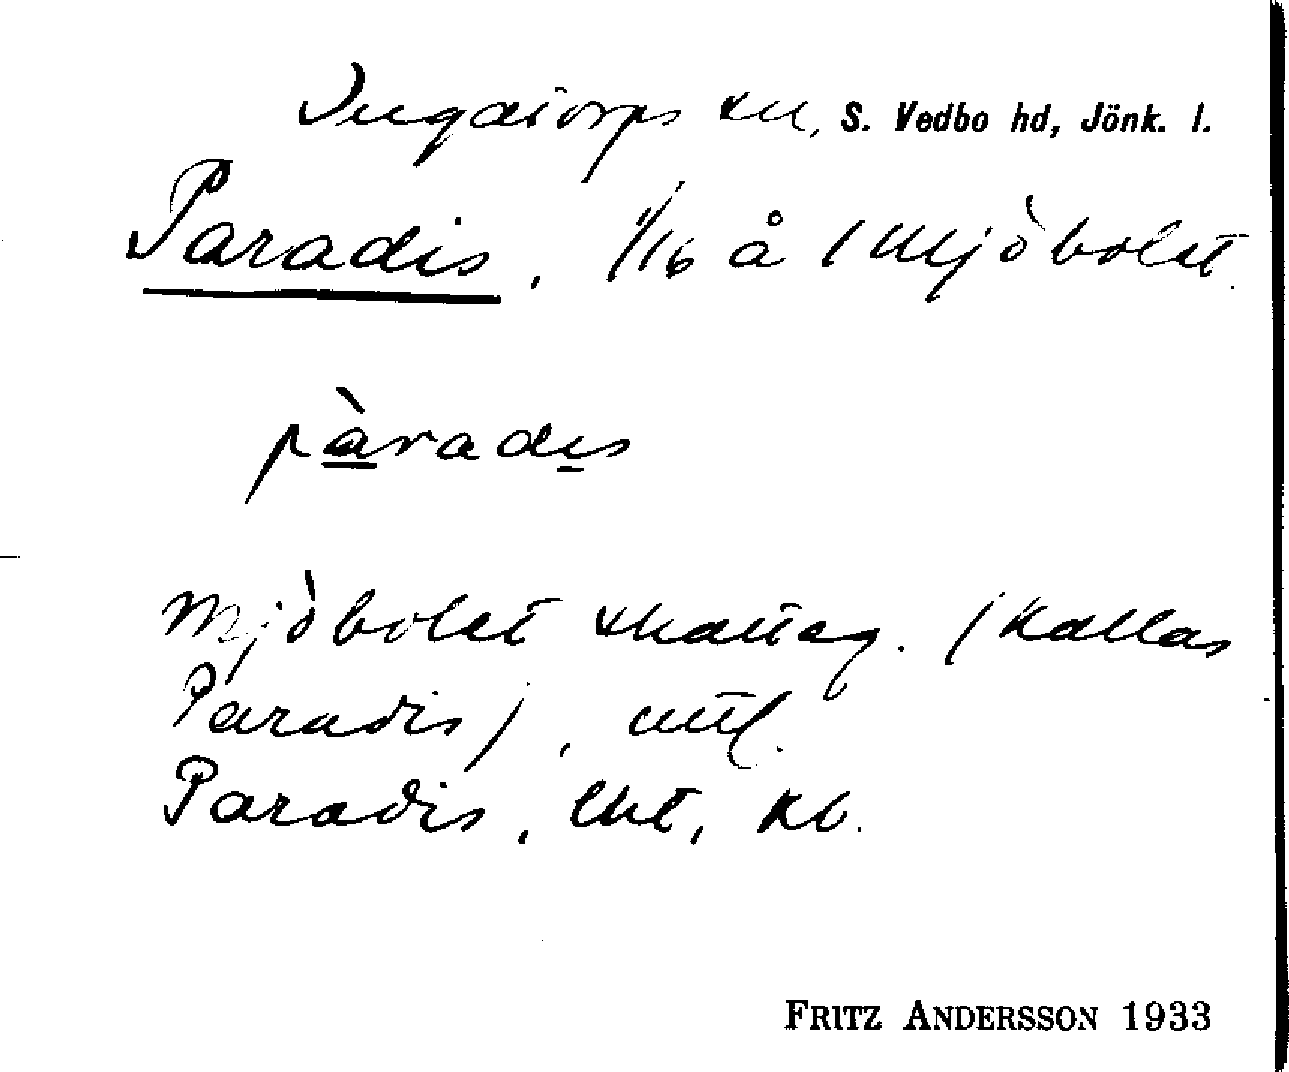 Ingatorps sn, S. Vedbo hd, Jönk. l.
Paradis, 1/16 å 1 Mjöbolet.
pàradis
Mjöbolet skatteg. (kallas
Paradis), uttl.
Paradis, lht, Kb.
FRITZ ANDERSSON 1933